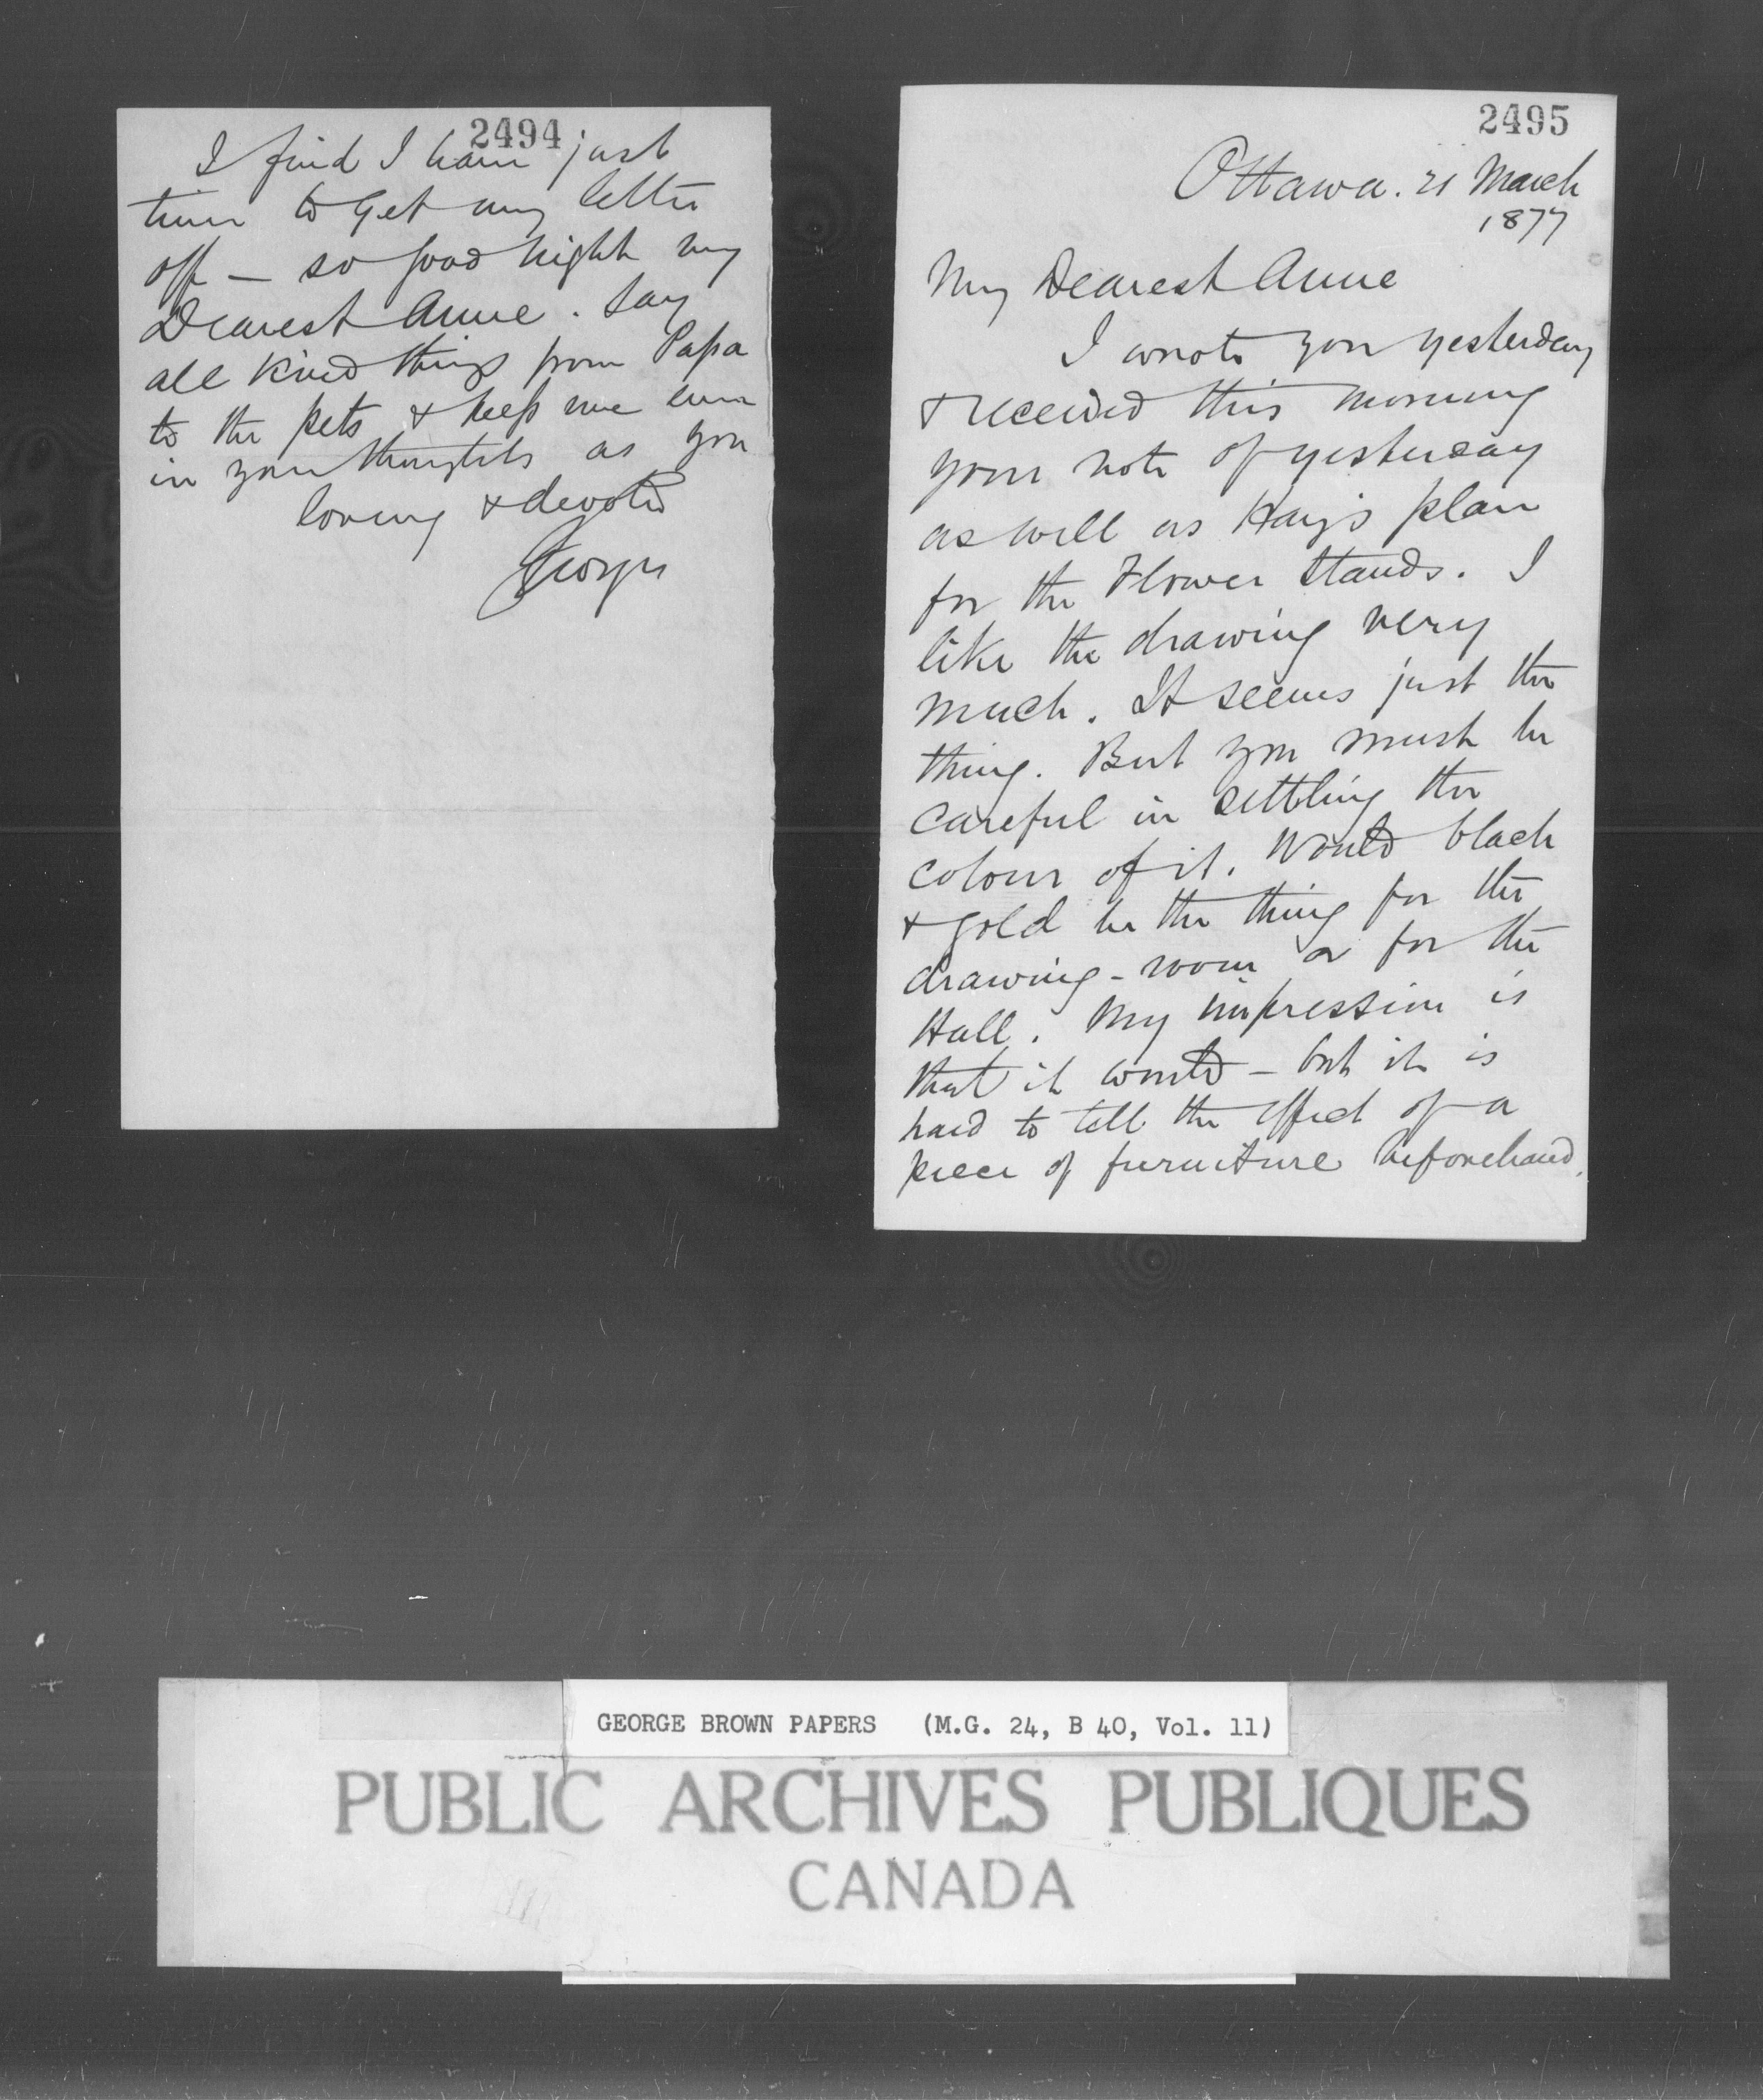 2494
I find I have just
time to get my letter
off — so good night my
Dearest Anne. Say
all kind things from Papa
to the pets & keep me ever
in your thoughts as your
loving & devoted
George
2495
Ottawa. 21 March
1877
My Dearest Anne
I wrote you yesterday
& received this morning
your note of yesterday
as well as Hay's plan
for the Flower Stands. I
like the drawing very
much. It seems just the
thing. But you must be
careful in settling the
colour of it. Would black
& gold be the thing for the
drawing-room or for the
Hall. My impression is
that it would — but it is
hard to tell the effect of a
piece of furniture beforehand.
GEORGE BROWN PAPERS (M.G. 24, B 40, Vol. 11)
PUBLIC ARCHIVES PUBLIQUES
CANADA